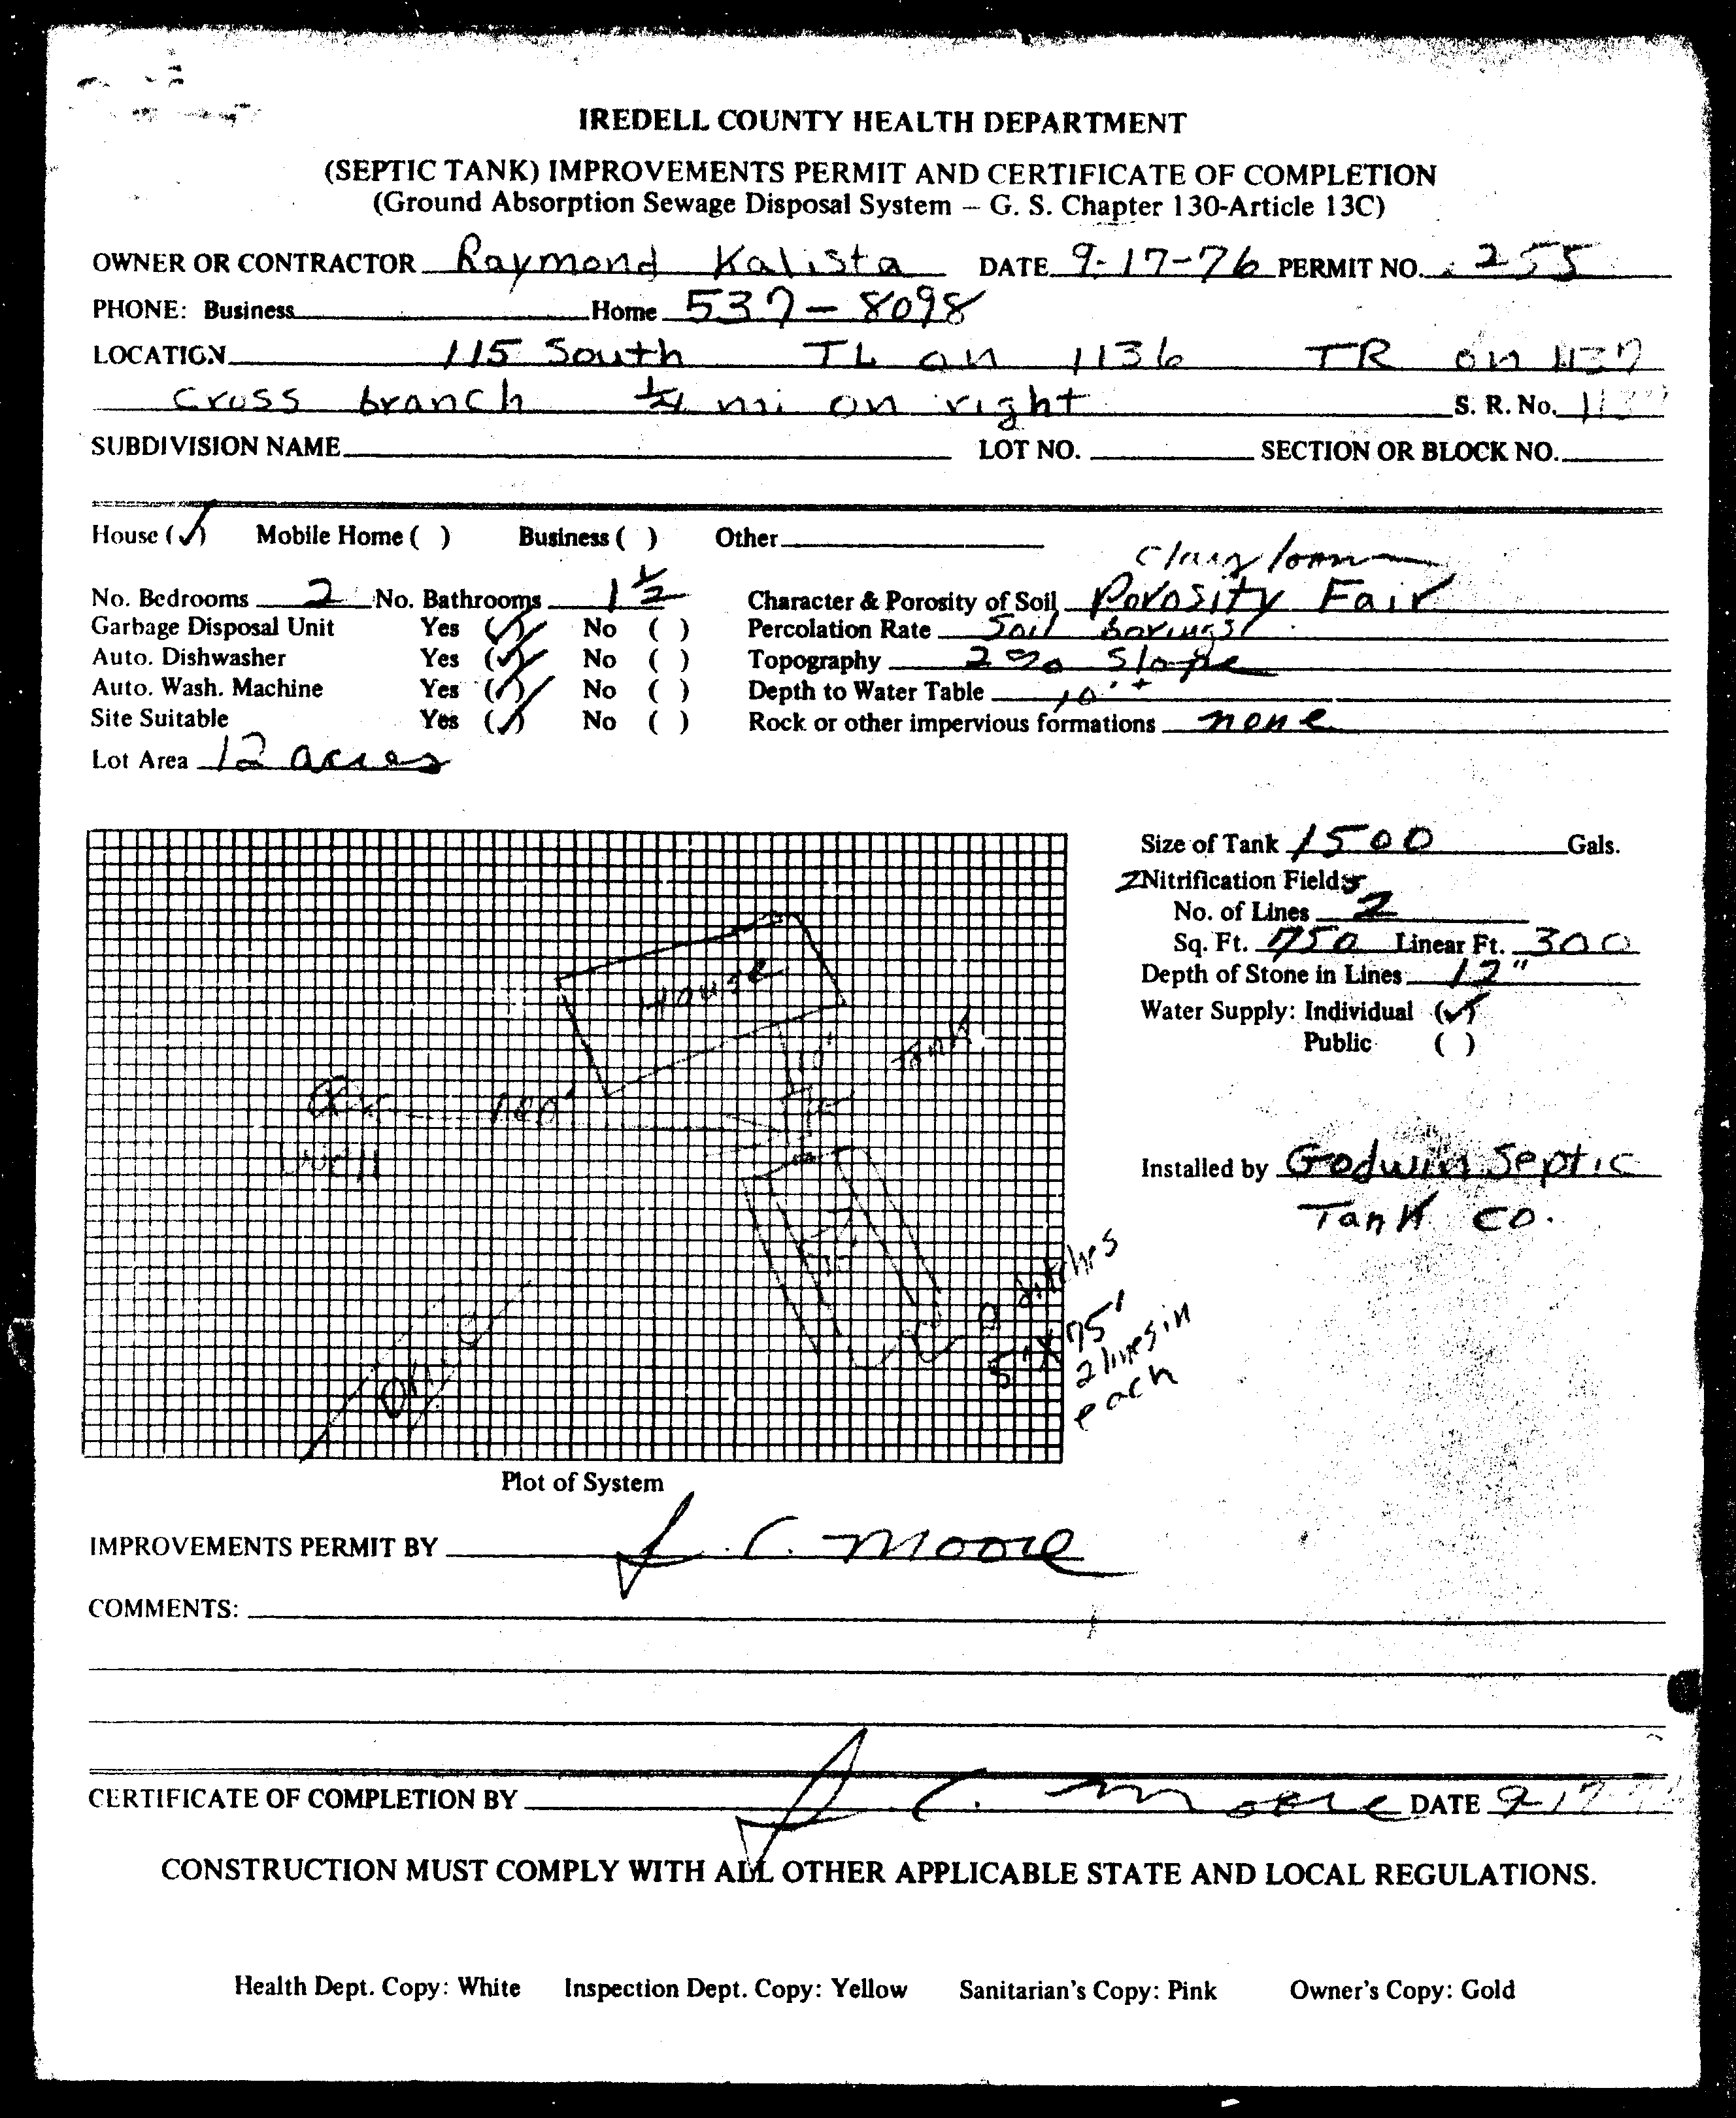 IREDELL COUNTY HEALTH DEPARTMENT
(SEPTIC TANK) IMPROVEMENTS PERMIT AND CERTIFICATE OF COMPLETION
(Ground Absorption Sewage Disposal System – G. S. Chapter 130-Article 13C)
OWNER OR CONTRACTOR Raymond Kalista DATE 9-17-76 PERMIT NO. 255
PHONE: Business Home 537-8098
LOCATION 115 South TL on 1136 TR on 1137
Cross branch 1/4 mi on right S. R. No.
SUBDIVISION NAME LOT NO. SECTION OR BLOCK NO.
House (✓) Mobile Home ( ) Business ( ) Other
Clay loam
No. Bedrooms 2 No. Bathrooms 1 1/2 Character & Porosity of Soil Porosity Fair
Garbage Disposal Unit Yes (✓) No ( ) Percolation Rate Soil borings
Auto. Dishwasher Yes (✓) No ( ) Topography 2% Slope
Auto. Wash. Machine Yes (✓) No ( ) Depth to Water Table 10'+
Site Suitable Yes (✓) No ( ) Rock or other impervious formations none
Lot Area 12 acres
Size of Tank 1500 Gals.
2 Nitrification Fields
No. of Lines 2
Sq. Ft. 750 Linear Ft. 300
Depth of Stone in Lines 12"
Water Supply: Individual (✓)
Public ( )
House
10'
Tank
100'
Well
Installed by Godwin Septic
Tank CO.
2 ditches
5' X 75'
2 lines in
each
Plot of System
IMPROVEMENTS PERMIT BY J. C. Moore
COMMENTS:
CERTIFICATE OF COMPLETION BY J. C. Moore DATE 9-17-76
CONSTRUCTION MUST COMPLY WITH ALL OTHER APPLICABLE STATE AND LOCAL REGULATIONS.
Health Dept. Copy: White Inspection Dept. Copy: Yellow Sanitarian's Copy: Pink Owner's Copy: Gold